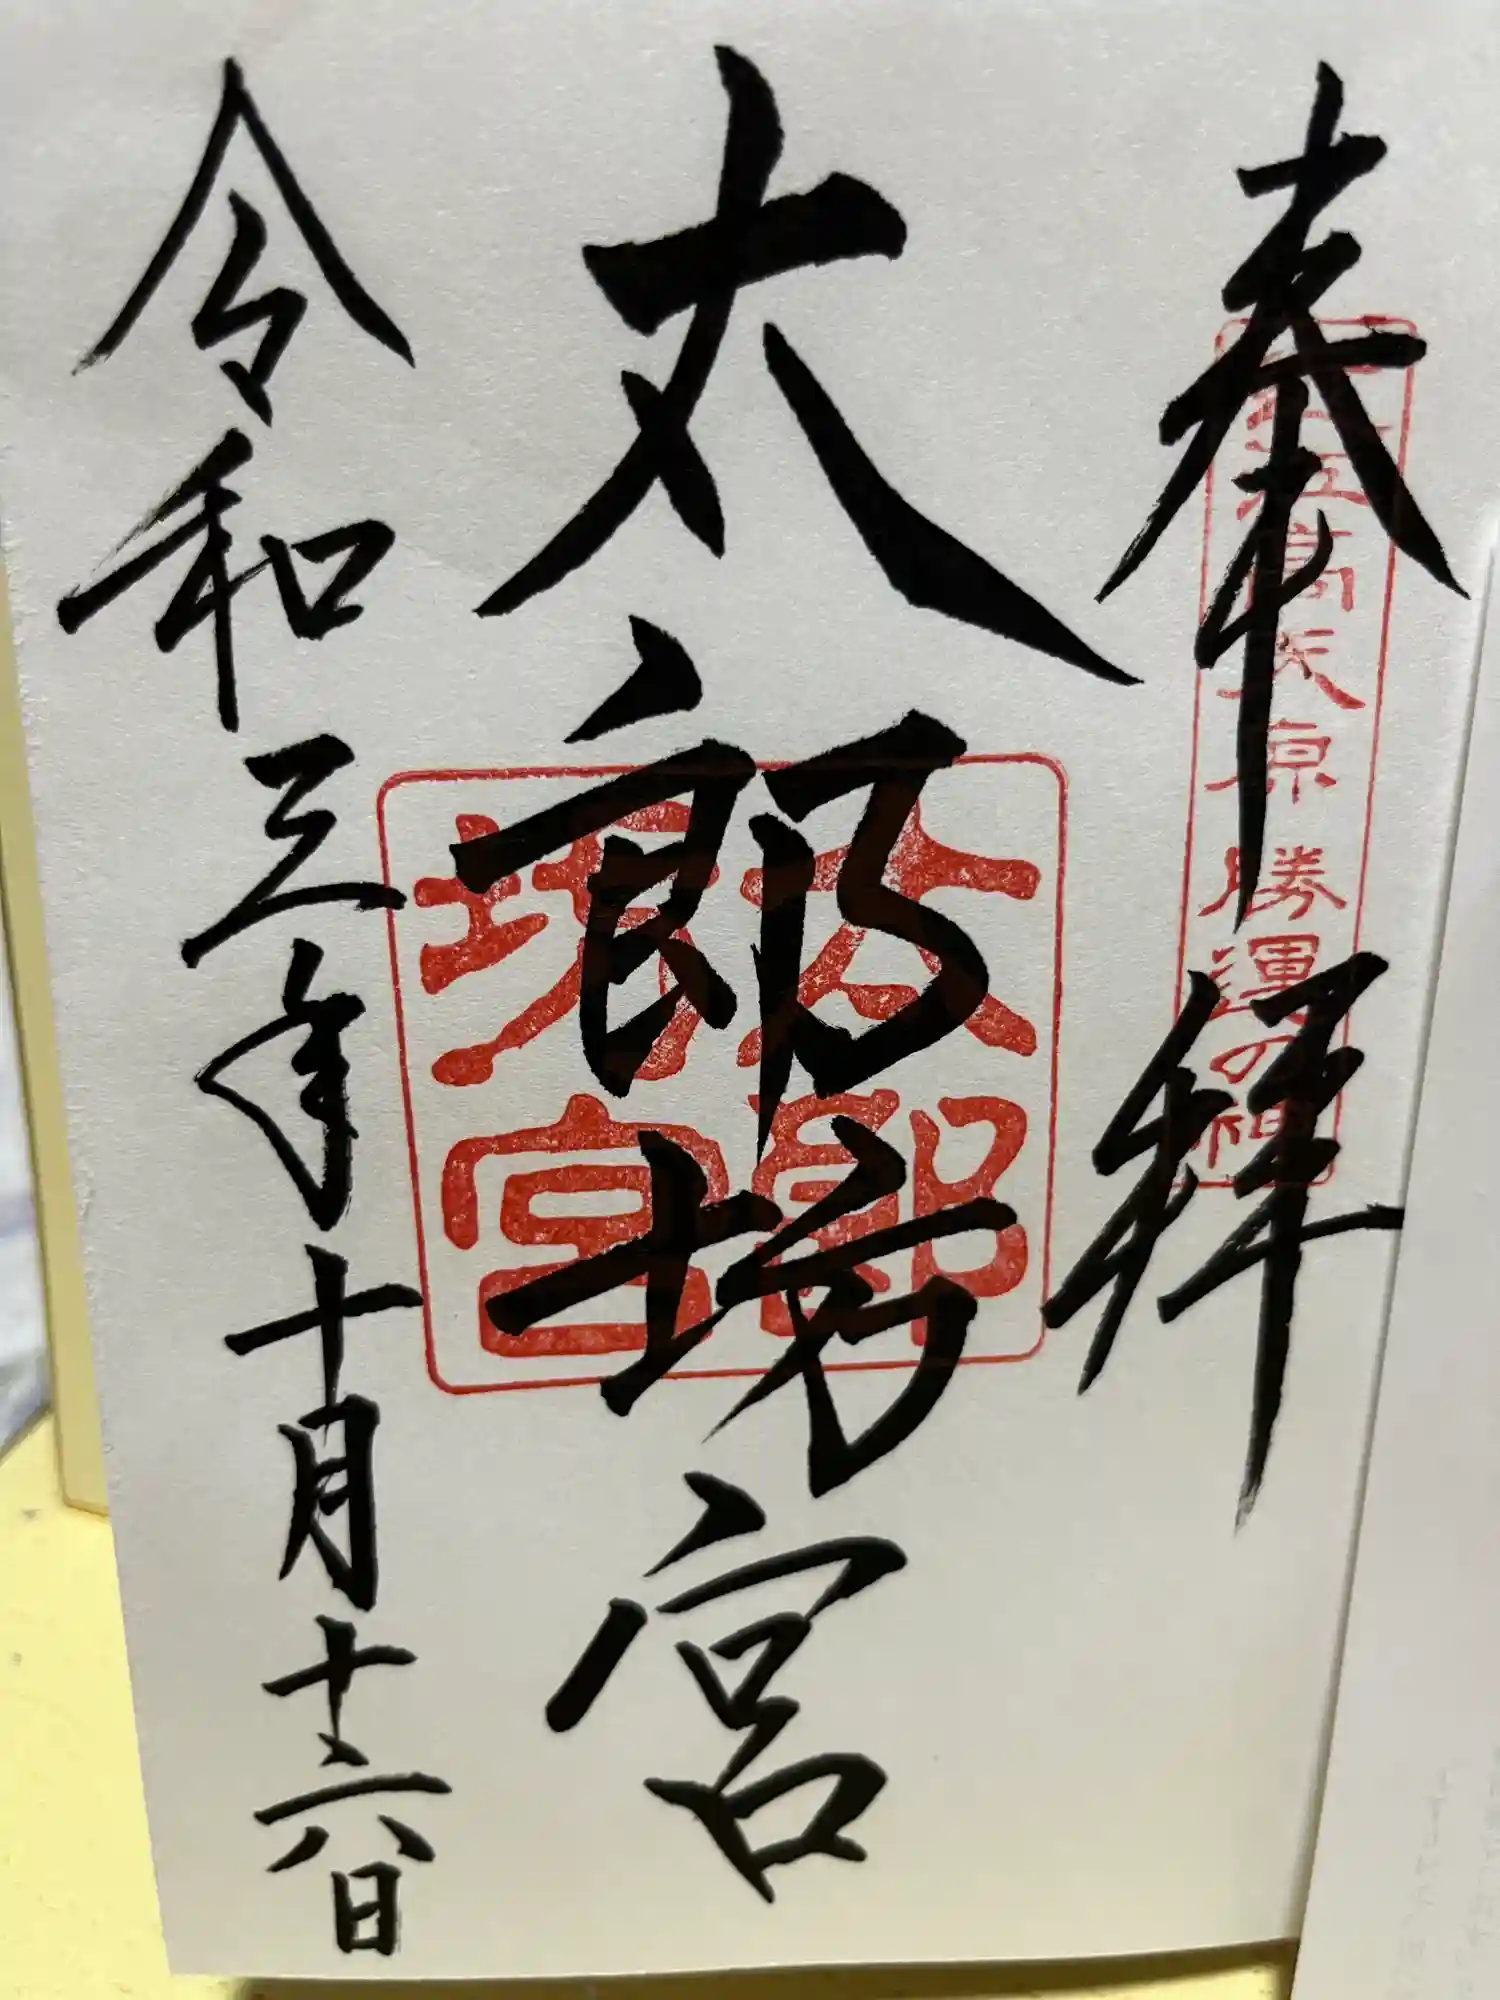 奉拝
近江高天原勝運の神
太郎坊宮
太郎坊宮
令和三年十月十六日